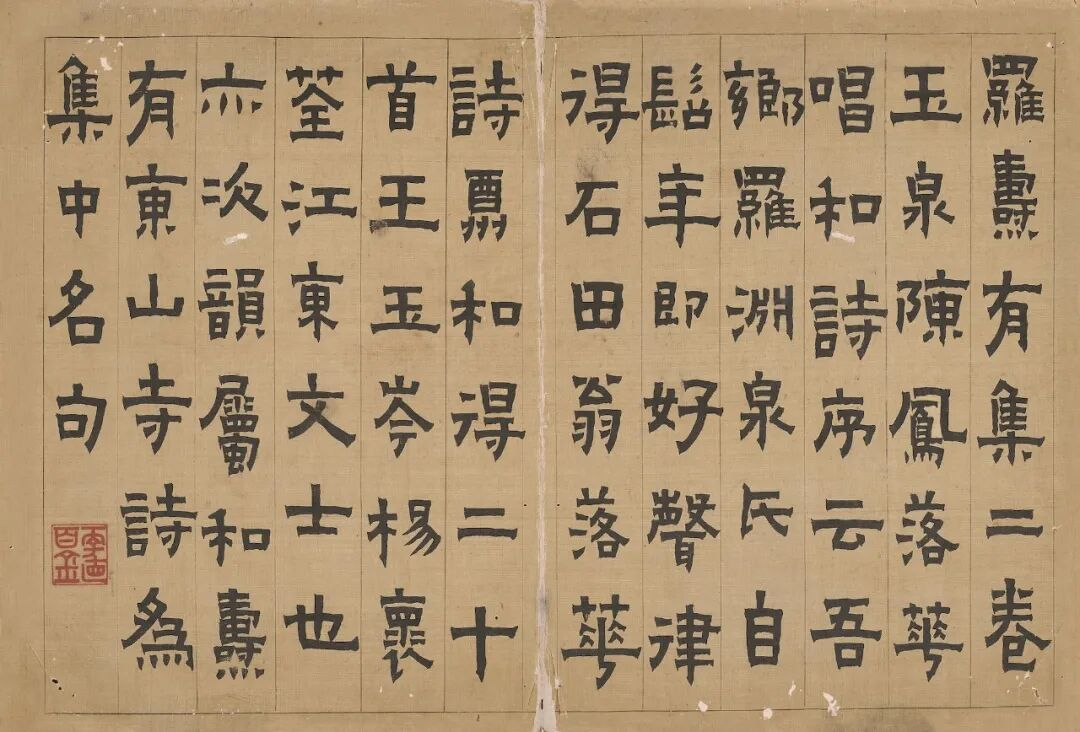 羅燾有集二卷
玉泉陳鳳落華
唱和詩序云吾
鄉羅淵泉氏自
髫年即好聲律
得石田翁落華
詩和得二十
首王玉岑楊褱
荃江東文士也
亦次韻屬和燾
有東山寺詩為
集中名句